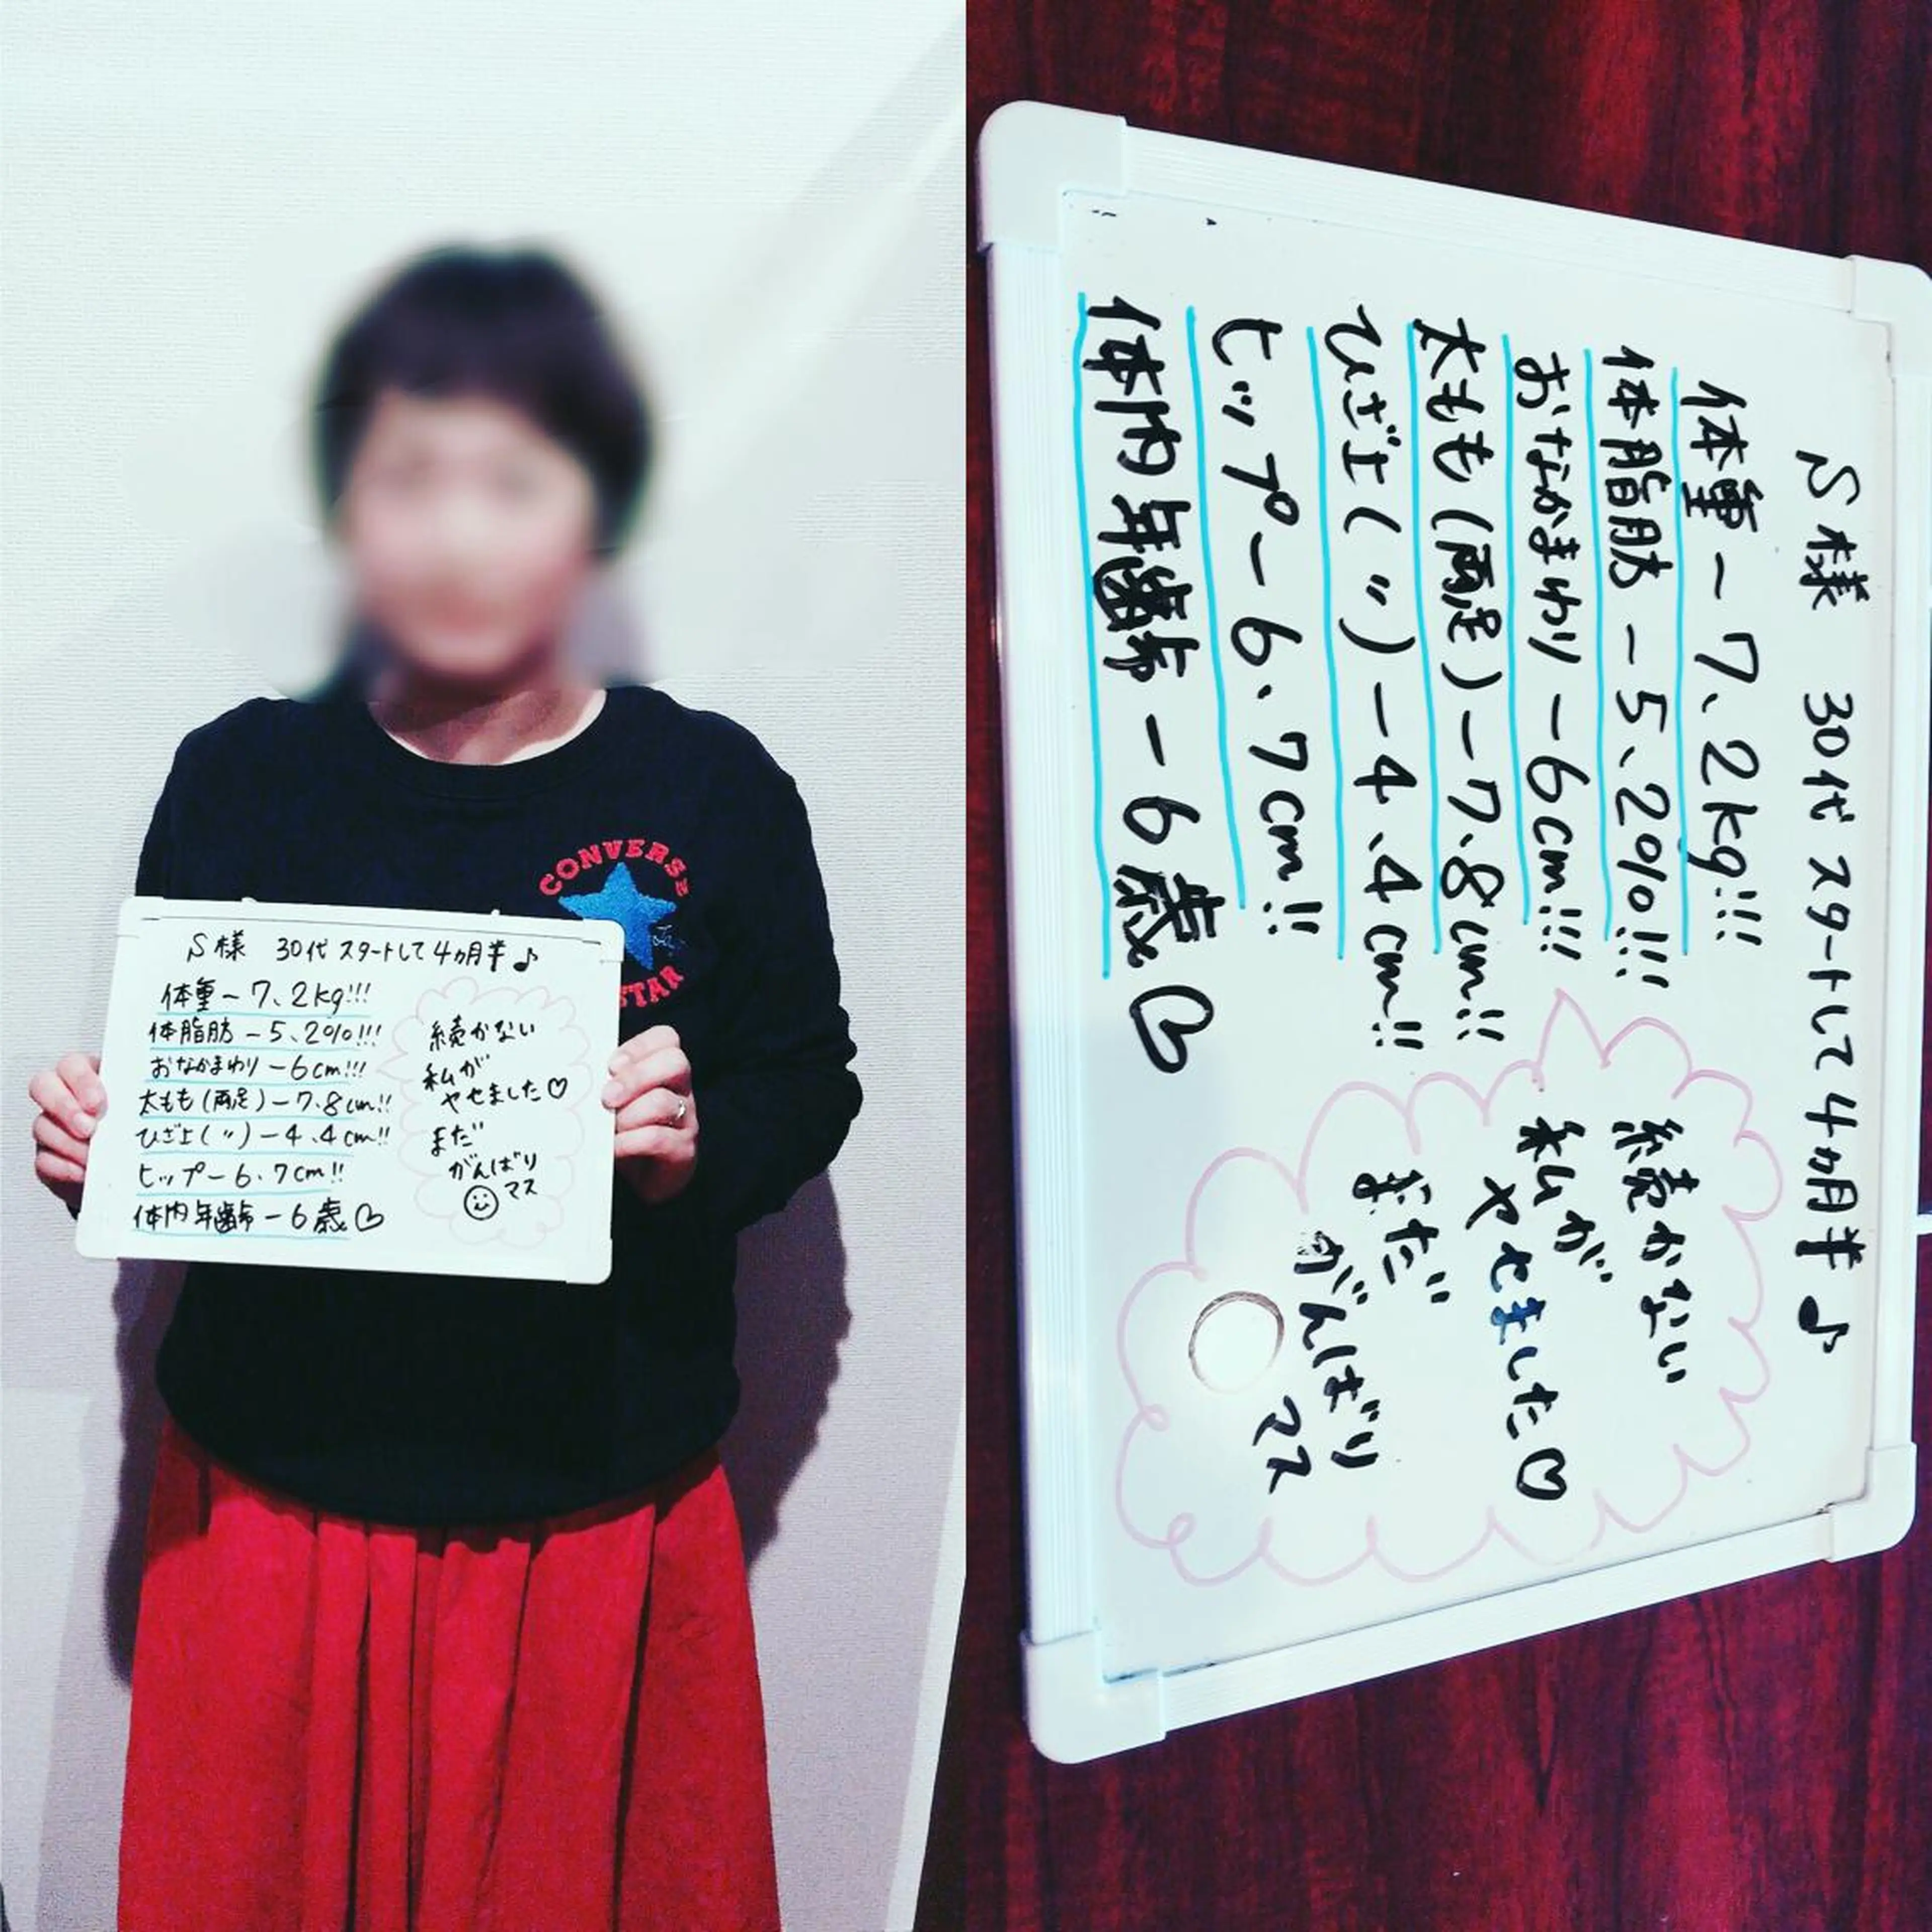 CONVERSE
STAR
S様 30代 スタートして4カ月半♪
体重-7、2kg!!!
体脂肪-5、2%!!!
おなかまわり-6cm!!!
太もも(両足)-7.8cm!!
ひざ上(〃)-4、4cm!!
ヒップ-6、7cm!!
体内年齢-6歳♡
続かない
私が
ヤセました♡
まだ
がんばり
マス
S様 30代 スタートして4カ月半♪
体重-7、2kg!!!
体脂肪-5、2%!!!
おなかまわり-6cm!!!
太もも(両足)-7.8cm!!
ひざ上(〃)-4、4cm!!
ヒップ-6、7cm!!
体内年齢-6歳♡
続かない
私が
ヤセました♡
まだ
がんばり
マス